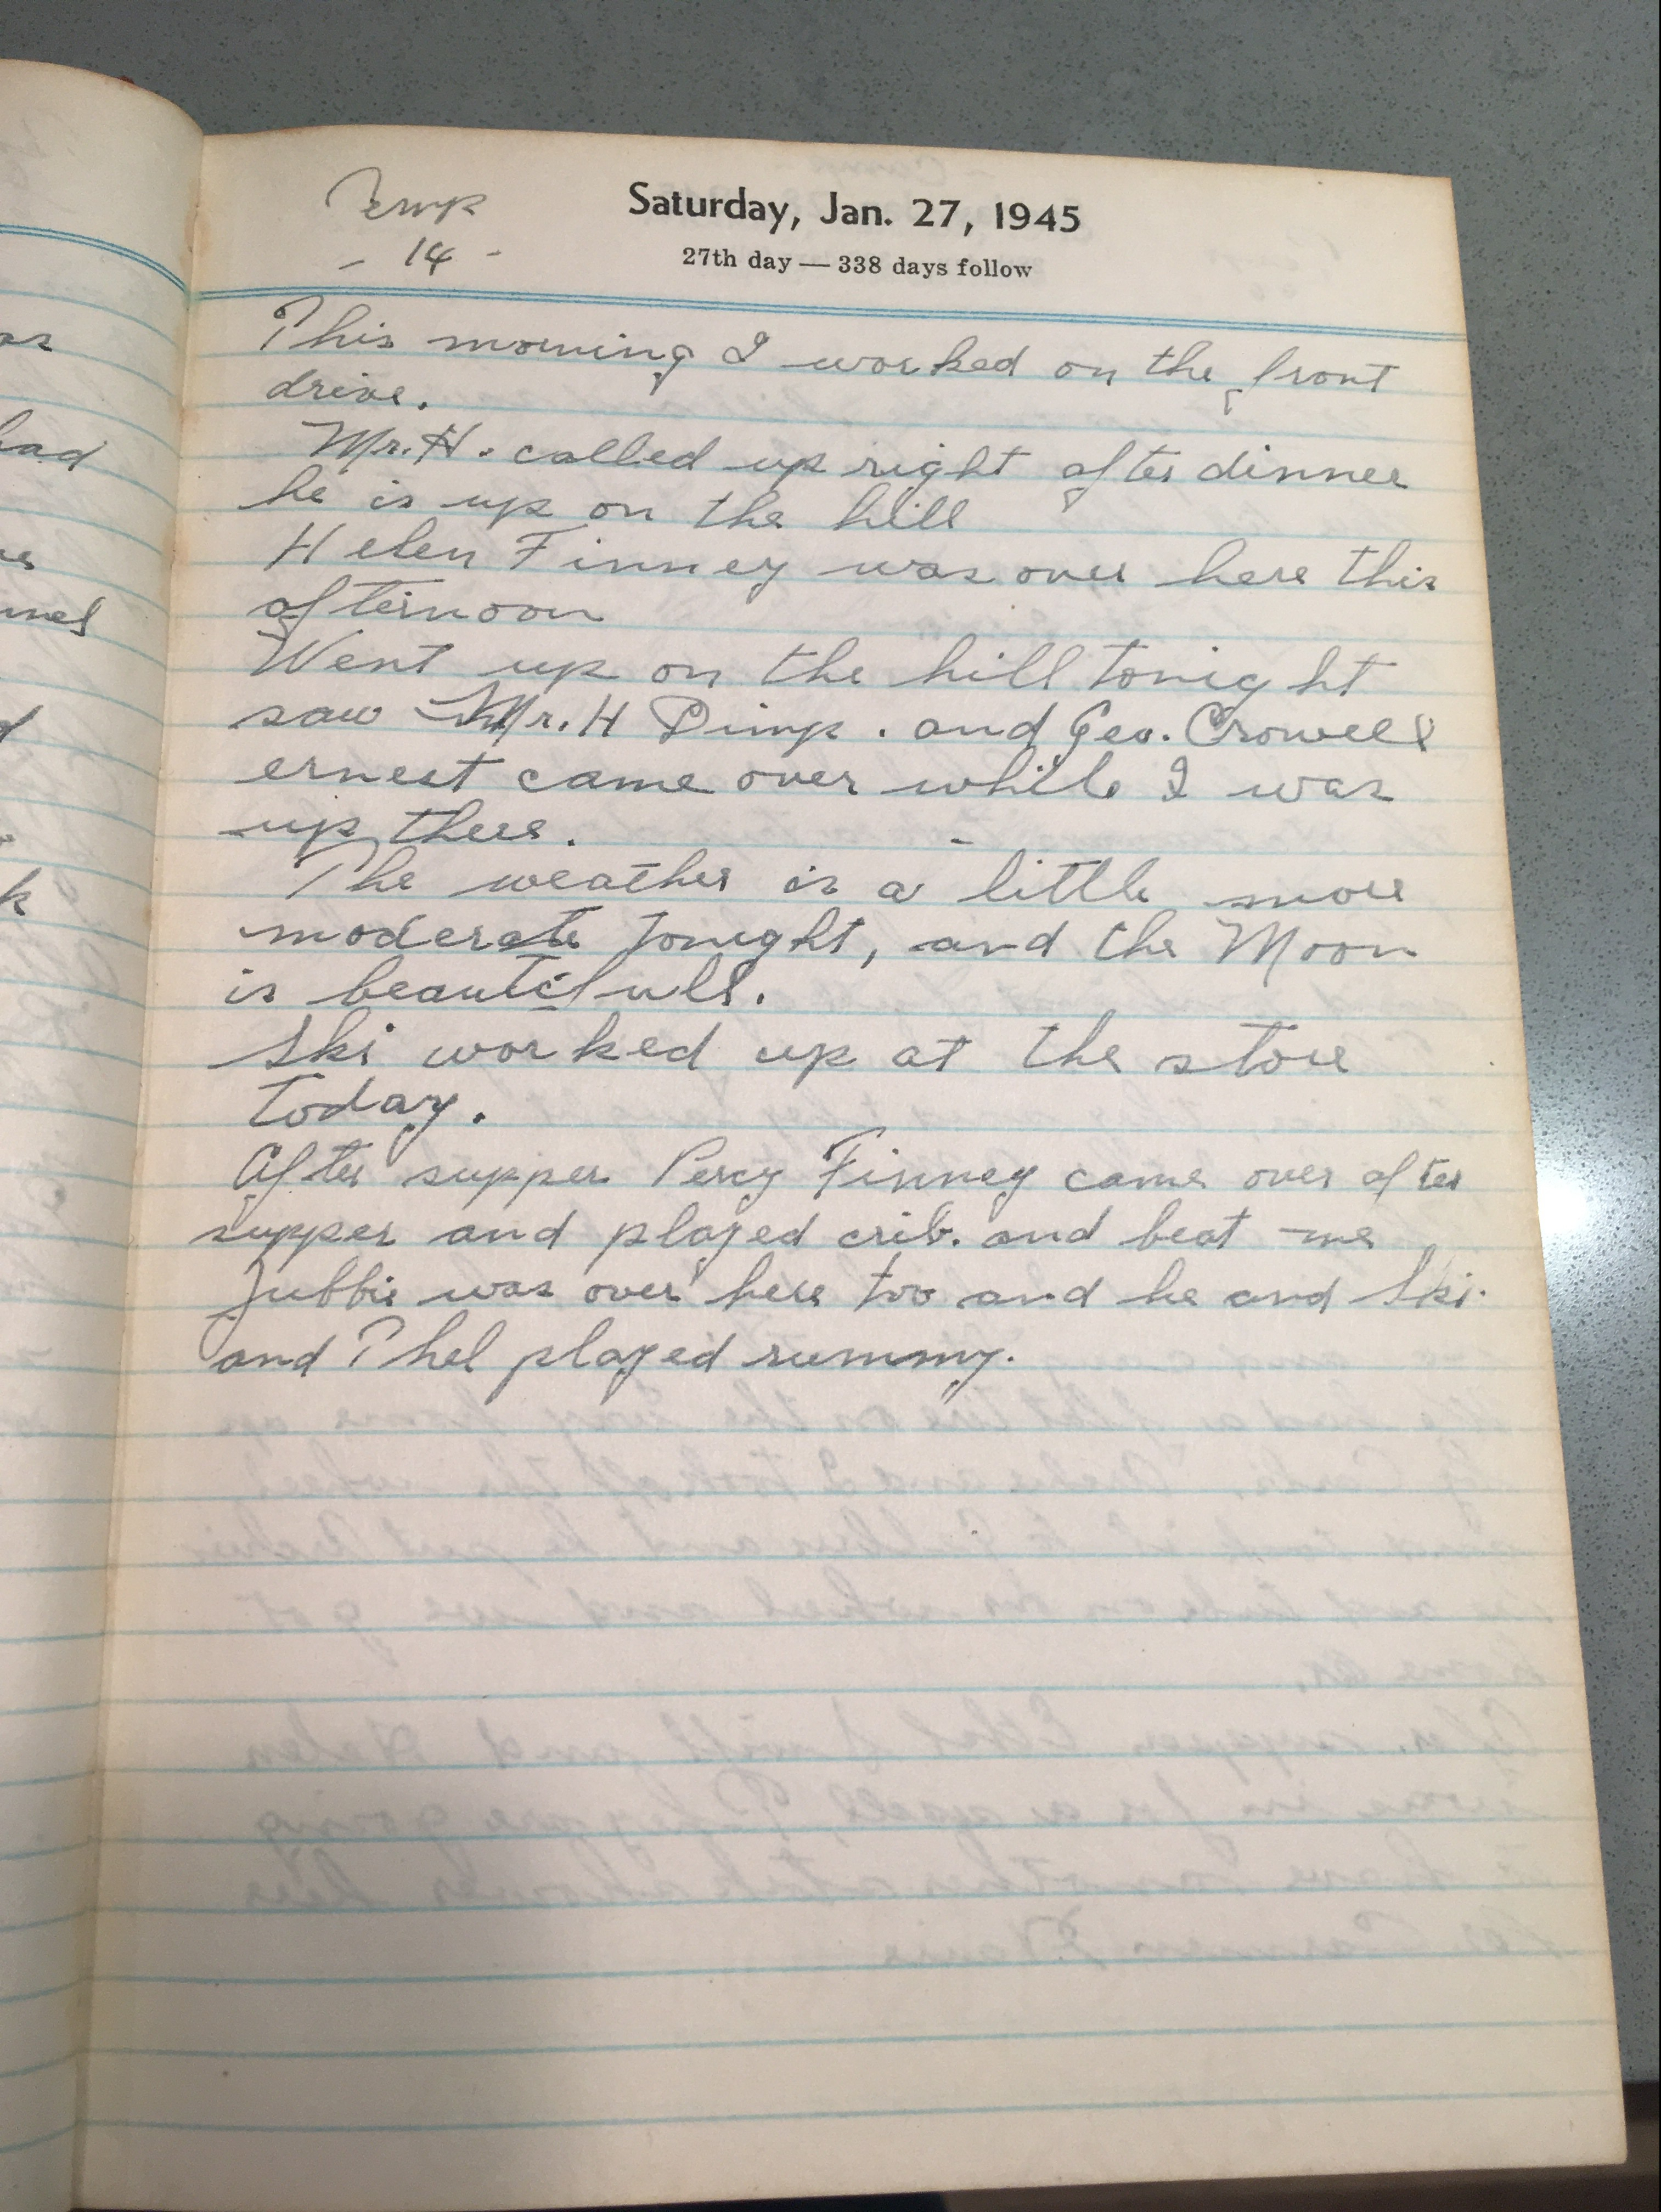 Temp
- 14 -
Saturday, Jan. 27, 1945
27th day — 338 days follow
This morning I worked on the front
drive.
Mr. H. called up right after dinner
he is up on the hill
Helen Finney was over here this
afternoon
Went up on the hill tonight
saw Mr. H Dimp. and Geo. Crowell
ernest came over while I was
up there.
The weather is a little more
moderate tonight, and the Moon
is beautifull.
Ski worked up at the store
today.
After supper Percy Finney came over after
supper and played crib. and beat me
Jubbie was over here too and he and Ski
and Phel played rummy.
had
k